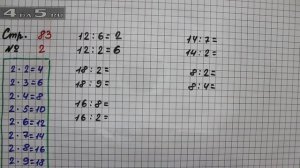 4на5.ru
Стр. 83
№ 2
2·2=4
2·3=6
2·4=8
2·5=10
2·6=12
2·7=14
2·8=16
2·9=18
12:6=2
12:2=6
18:2=
18:9=
16:8=
16:2=
14:7=
14:2=
8:2=
8:4=